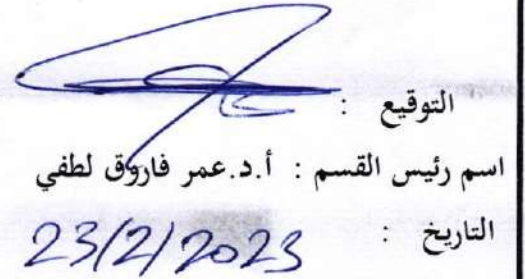 التوقيع :
اسم رئيس القسم : أ.د.عمر فاروق لطفي
التاريخ : 23/2/2023